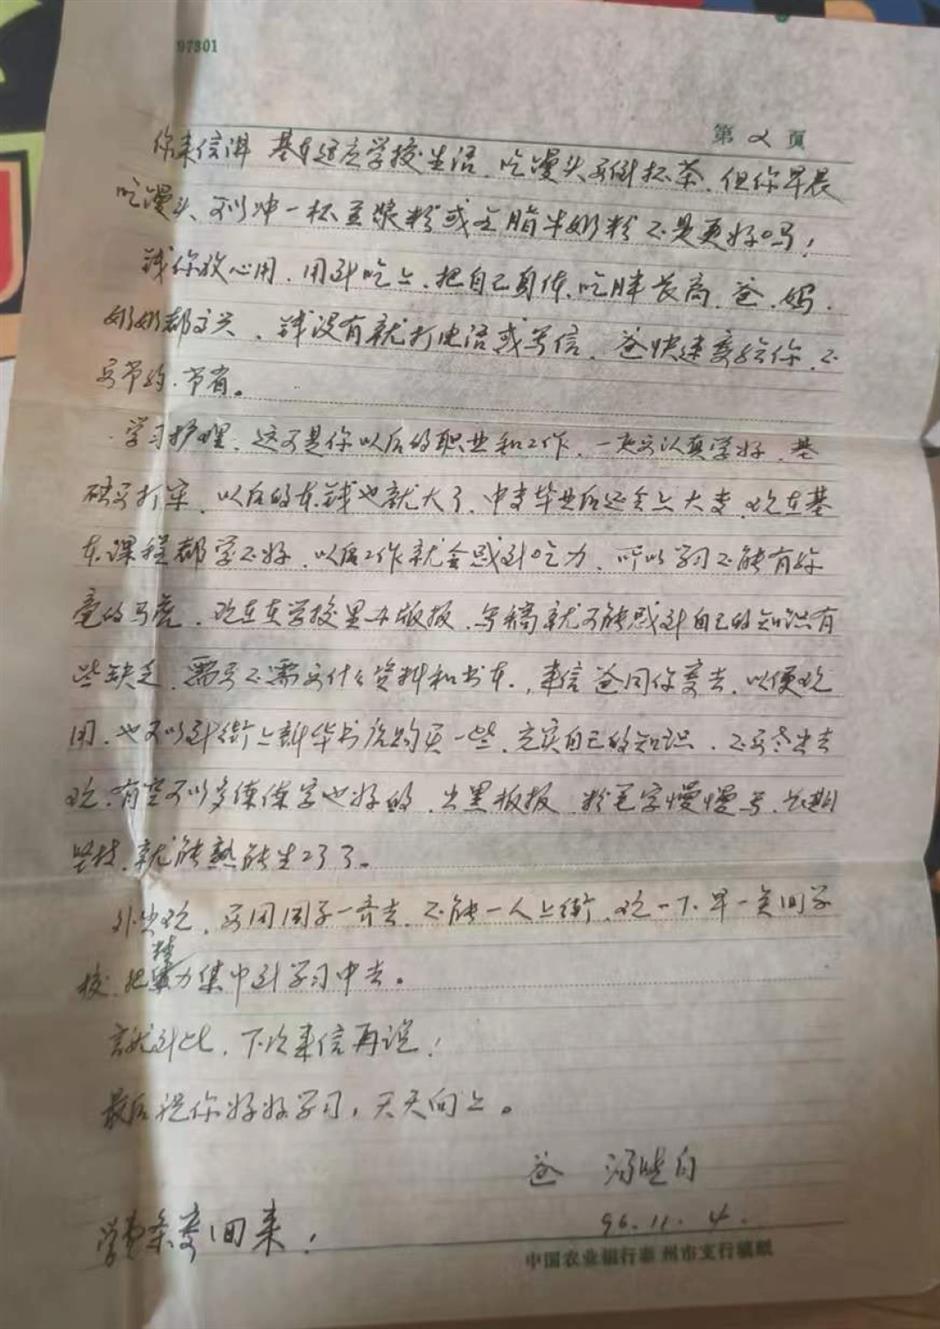 97301
第 2 页
你来信讲 基本适应学校生活、吃馒头要倒杯茶、但你早晨
吃馒头、可以冲一杯豆浆粉或全脂牛奶粉不是更好吗！
钱你放心用、用到吃上、把自己身体、吃胖长高、爸、妈、
奶奶都高兴、钱没有就打电话或写信、爸快速寄给你、不
要节约、节省。
学习护理、这可是你以后的职业和工作、一定要认真学好、基
础要打牢、以后的本钱也就大了、中专毕业后还会上大专、现在基
本课程都学不好、以后工作就会感到吃力、所以学习不能有丝
毫的马虎、现在在学校里办版报、写稿就可能感到自己的知识有
些缺乏、需要不需要什么资料和书本、来信爸同你寄去、以便现
用、也可以到街上新华书店购买一些、充实自己的知识、不要尽出去
玩、有空可以多练练字也好的、出黑板报、粉笔字慢慢写、长期
坚持、就能熟能生巧了。
外出玩、要同同学一齐去、不能一人上街、玩一下早一点回学
校、把精力集中到学习中去。
言就到此、下次来信再说！
最后祝你好好学习，天天向上。
爸
96.11.4.
学费条寄回来！
中国农业银行泰州市支行稿纸